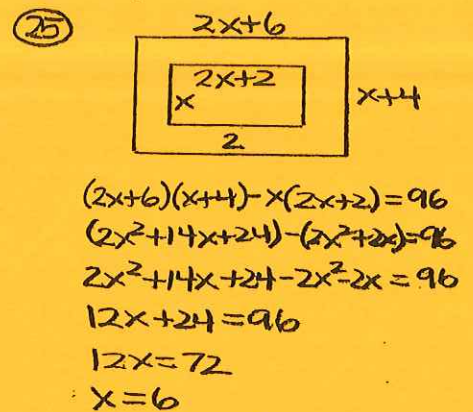 25
2x+6
2x+2
x
x+4
2
(2x+6)(x+4)-x(2x+2)=96
(2x²+14x+24)-(2x²+2x)=96
2x²+14x+24-2x²-2x=96
12x+24=96
12x=72
x=6